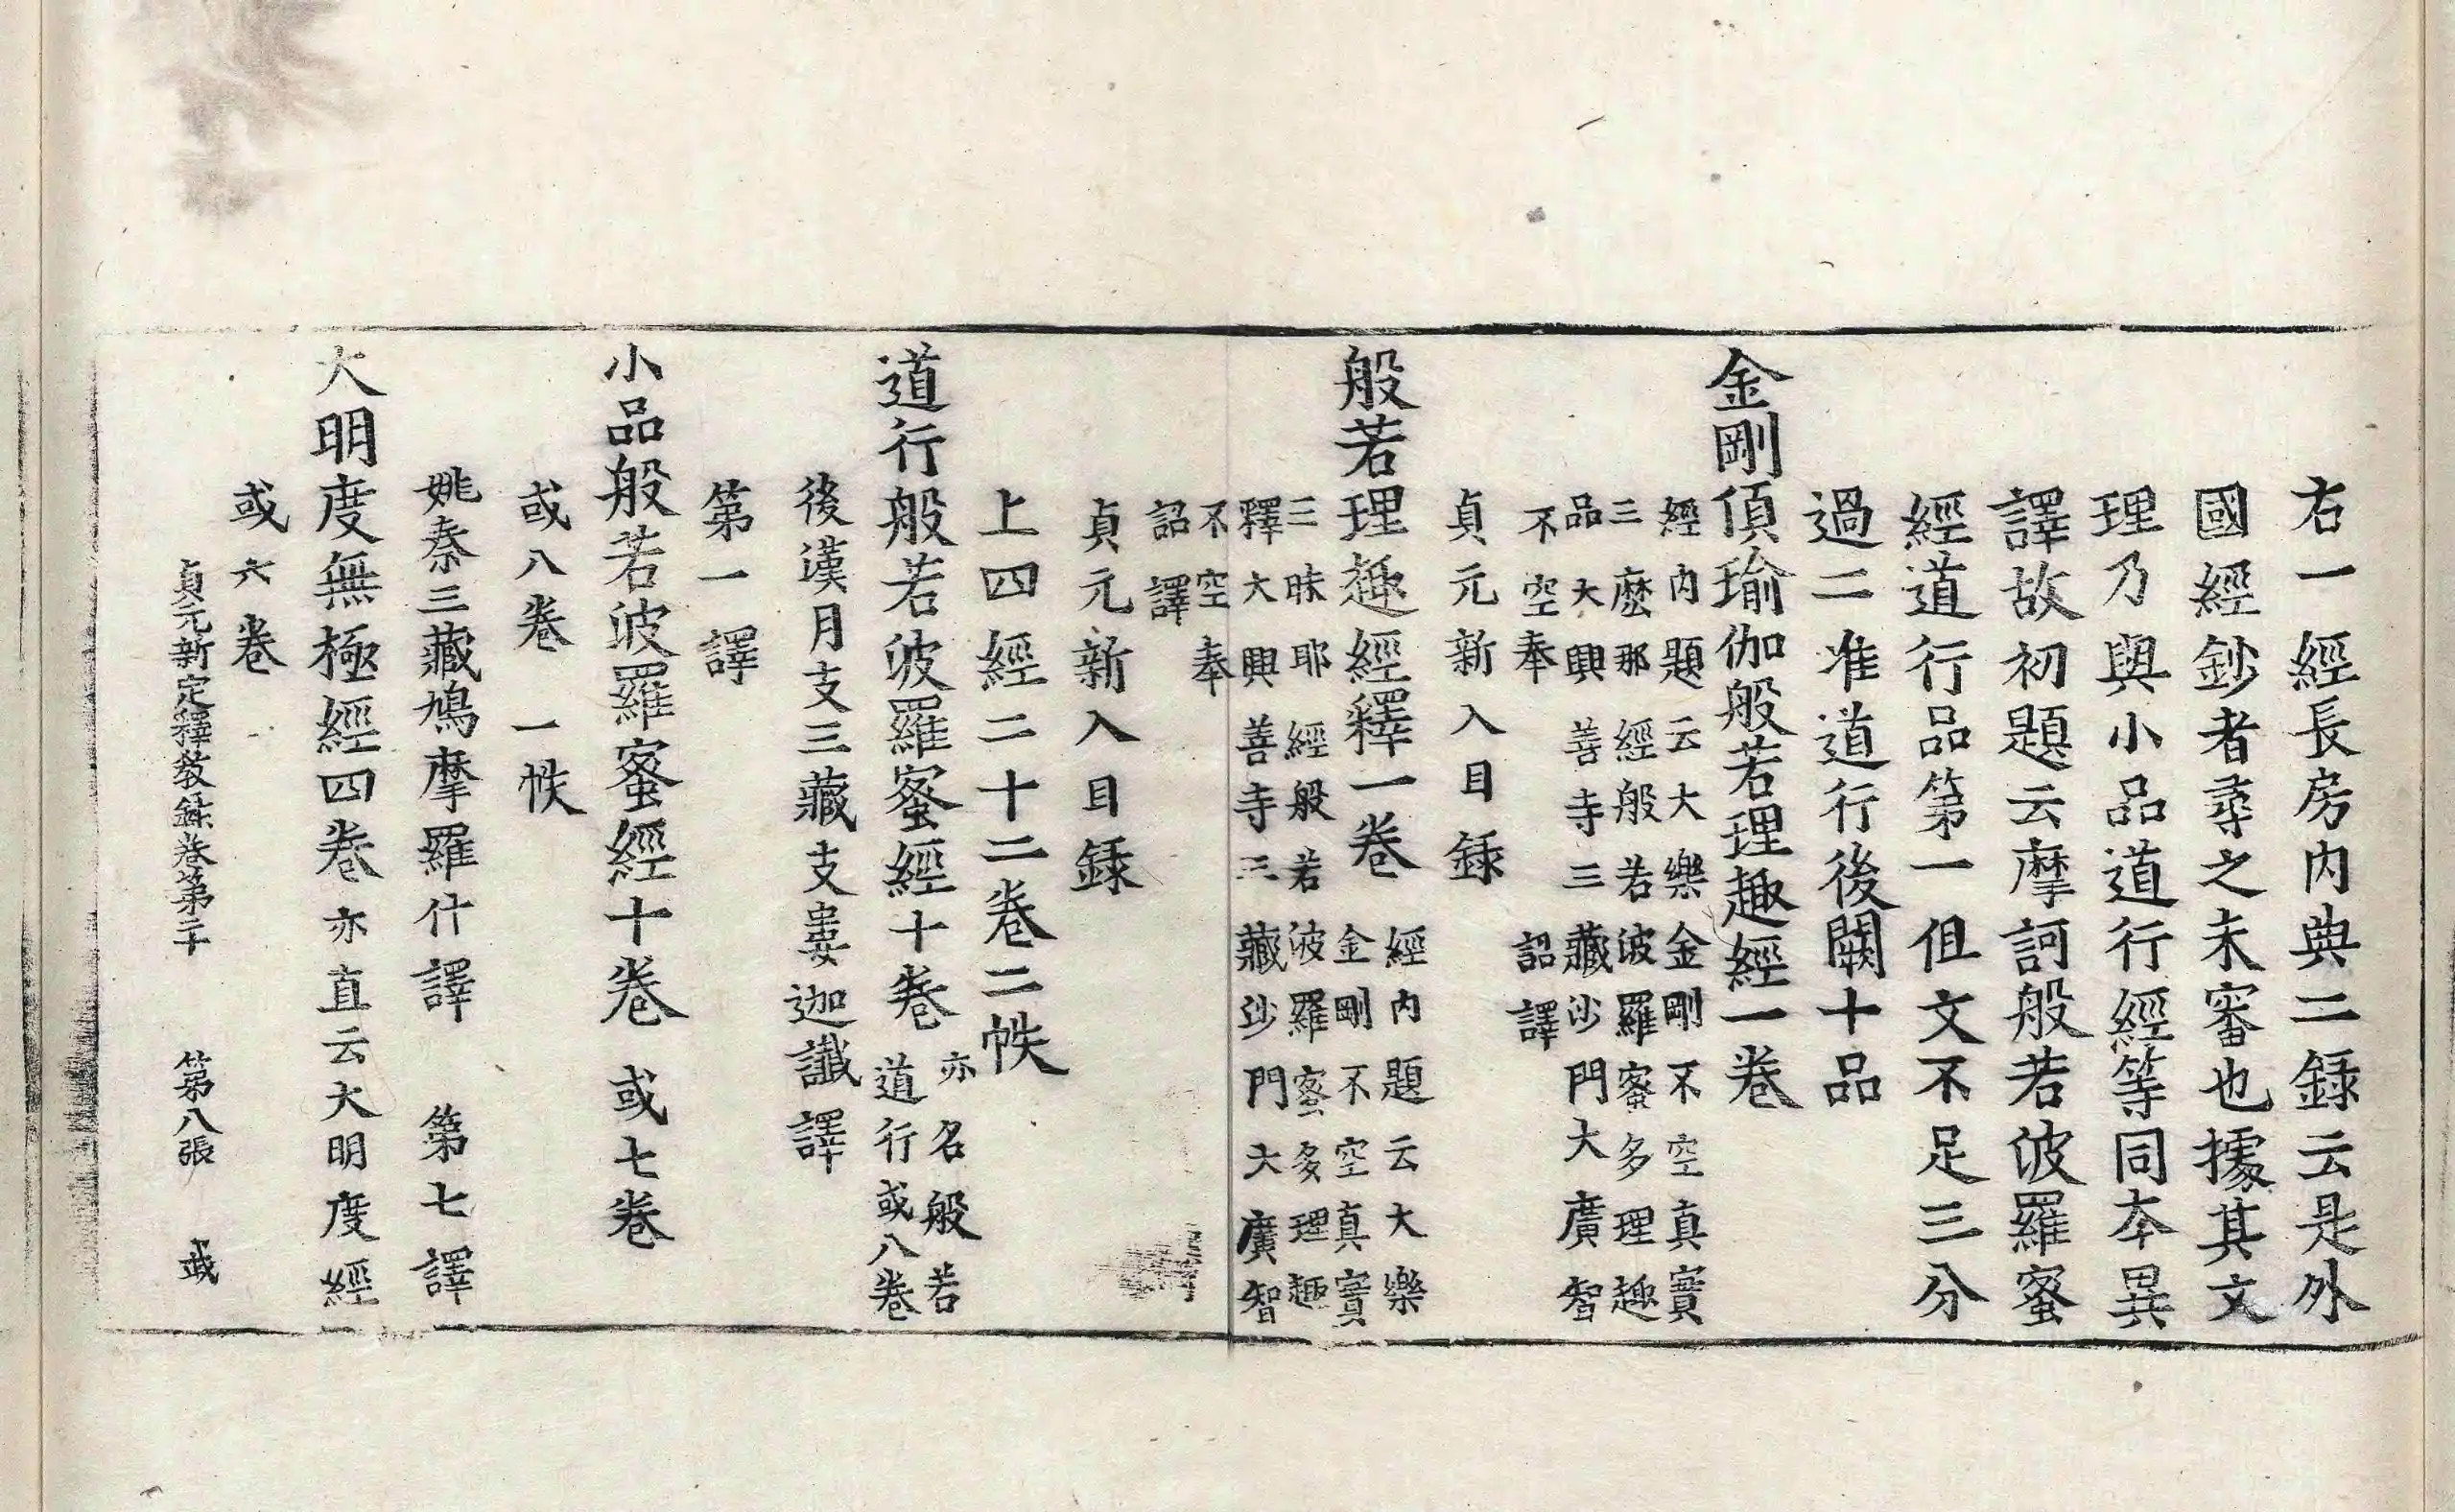 右一經長房內典二錄云是外
國經鈔者尋之未審也據其文
理乃與小品道行經等同本異
譯故初題云摩訶般若波羅蜜
經道行品第一但文不足三分
過二准道行後闕十品
金剛頂瑜伽般若理趣經一卷
經內題云大樂金剛不空真實
三麼那經般若波羅蜜多理趣
品大興善寺三藏沙門大廣智
不空奉 詔譯
貞元新入目錄
般若理趣經釋一卷
經內題云大樂
金剛不空真實
三昧耶經般若波羅蜜多理趣
釋大興善寺三藏沙門大廣智
不空奉
詔譯
貞元新入目錄
上四經二十二卷二帙
道行般若波羅蜜經十卷
亦名般若
道行或八卷
後漢月支三藏支婁迦讖譯
第一譯
小品般若波羅蜜經十卷 或七卷
或八卷 一帙
姚秦三藏鳩摩羅什譯 第七譯
大明度無極經四卷 亦直云大明度經
或六卷
貞元新定釋教錄卷第二十 第八張